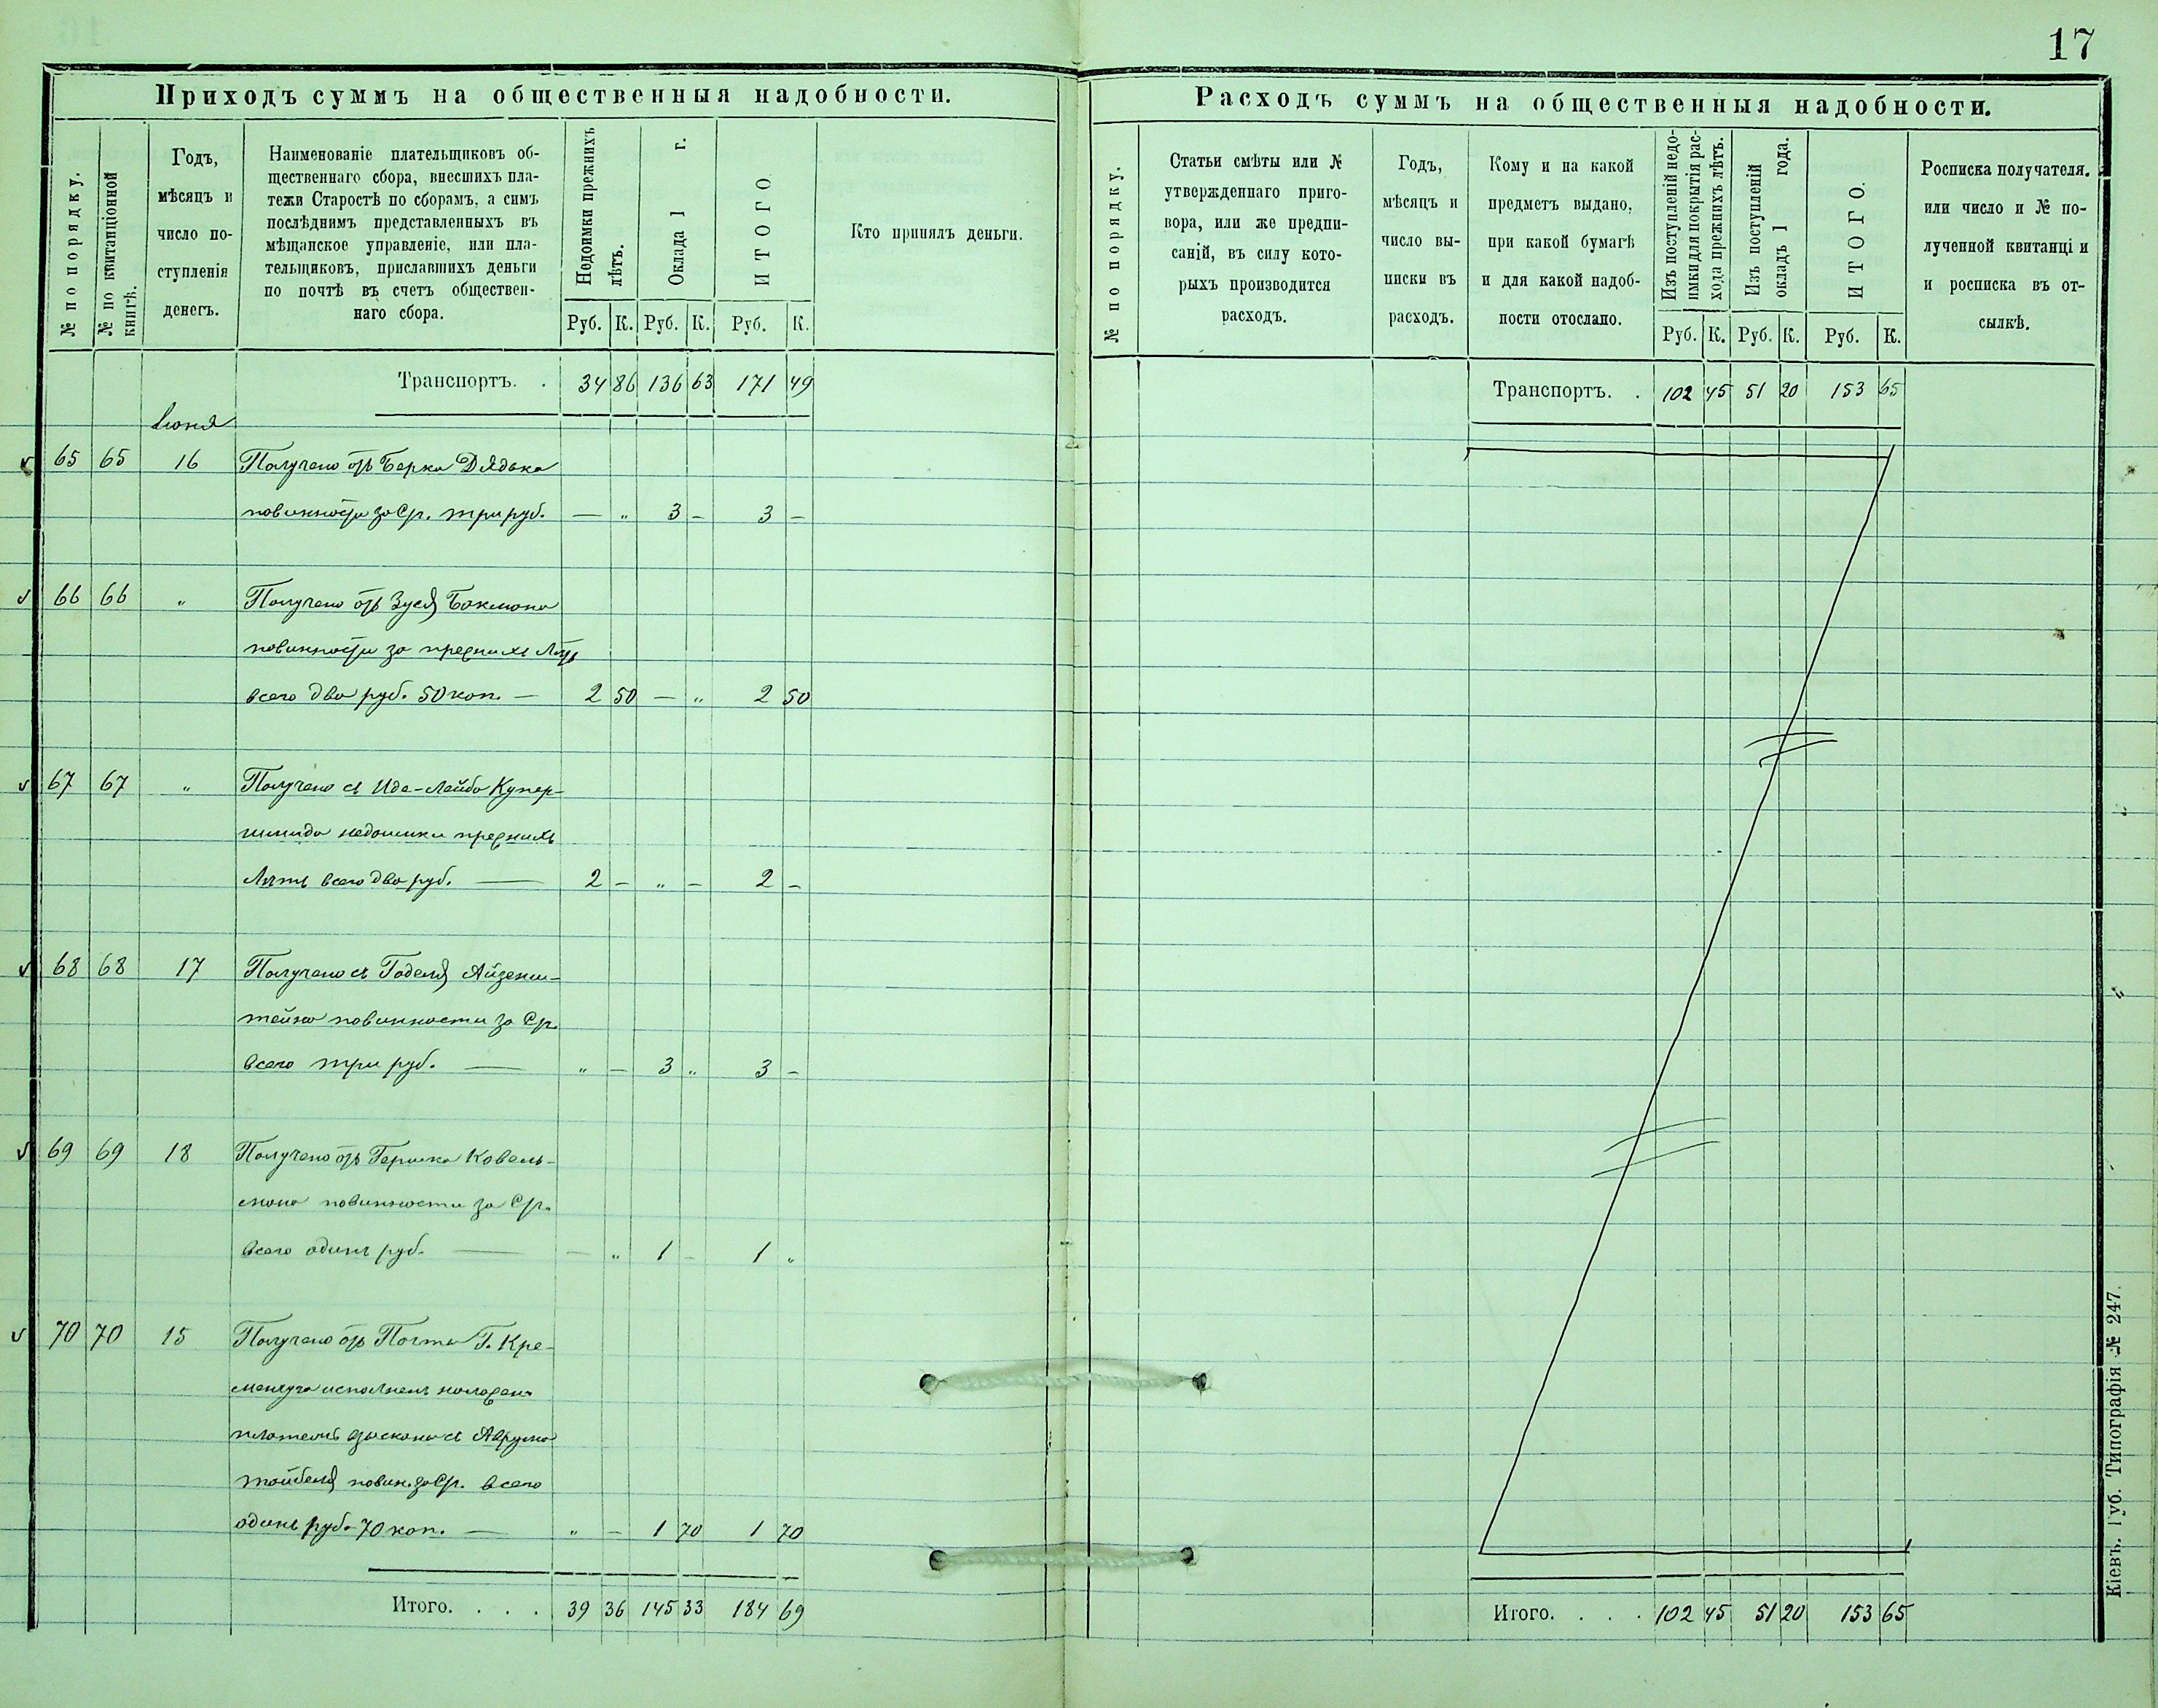 17
Приходъ суммъ на общественныя надобности.
№ по порядку.
№ по квитанціонной книгѣ.
Годъ,
мѣсяцъ и
число по-
ступленія
денегъ.
Наименованіе плательщиковъ об-
щественнаго сбора, внесшихъ пла-
тежи Старостѣ по сборамъ, а симъ
послѣднимъ представленныхъ въ
мѣщанское управленіе, или пла-
тельщиковъ, приславшихъ деньги
по почтѣ въ счетъ обществен-
наго сбора.
Недоимки прежнихъ
лѣтъ.
Оклада 1 г.
ИТОГО.
Руб. К. Руб. К. Руб. К.
Кто принялъ деньги.
Транспортъ. . 34 86 136 63 171 49
Іюня
65 65 16 Получено отъ Берка Дядька
повинности за Ср. три руб. — „ 3 – 3 –
66 66 „ Получено отъ Зуся Бокмана
повинности за прежнихъ Лѣтъ
всего два руб. 50 коп. — 2 50 — „ 2 50
67 67 „ Получено съ Иде-Лейба Купер-
шмида недоимки прежнихъ
Лѣтъ всего два руб. — 2 – „ – 2 –
68 68 17 Получено съ Годеля Айзенш-
тейна повинности за Ср.
всего три руб. — „ – 3 „ 3 –
69 69 18 Получено отъ Гершка Ковель-
мана повинности за Ср.
всего одинъ руб. — — „ 1 – 1 „
70 70 15 Получено отъ Почты Г. Кре-
менчуга
взыскано съ Аврума
повин. за Ср. всего
одинъ руб. 70 коп. — „ – 1 70 1 70
Итого. . . . 39 36 145 33 184 69
Расходъ суммъ на общественныя надобности.
№ по порядку.
Статьи смѣты или №
утвержденнаго приго-
вора, или же предпи-
саній, въ силу кото-
рыхъ производится
расходъ.
Годъ,
мѣсяцъ и
число вы-
писки въ
расходъ.
Кому и на какой
предметъ выдано,
при какой бумагѣ
и для какой надоб-
ности отослано.
Изъ поступленій недо-
имки для покрытія рас-
хода прежнихъ лѣтъ.
Изъ поступленій
окладъ 1 года.
ИТОГО.
Руб. К. Руб. К. Руб. К.
Росписка получателя.
или число и № по-
лученной квитанці и
и росписка въ от-
сылкѣ.
Транспортъ. . 102 45 51 20 153 65
Итого. . . . 102 45 51 20 153 65
Кіевъ. Губ. Типографія № 247.